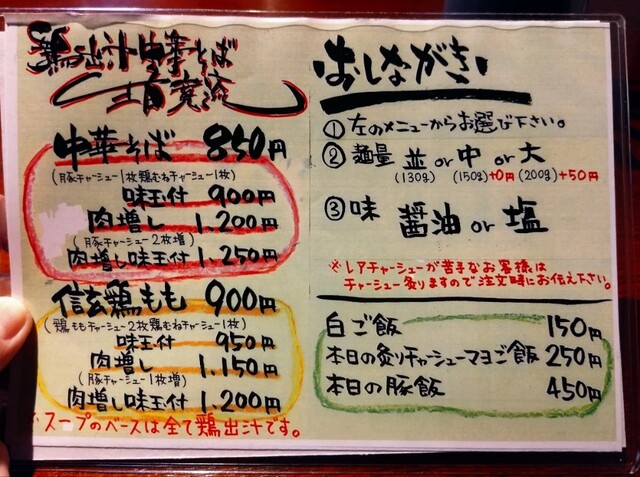 鶏出汁中華そば
中華そば 850円
(豚チャーシュー1枚鶏むねチャーシュー1枚)
味玉付 900円
肉増し 1.200円
(豚チャーシュー2枚増)
肉増し味玉付 1.250円
信玄鶏もも 900円
(鶏ももチャーシュー2枚鶏むねチャーシュー1枚)
味玉付 950円
肉増し 1.150円
(豚チャーシュー1枚増)
肉増し味玉付 1.200円
※スープのベースは全て鶏出汁です。
おしながき
①左のメニューからお選び下さい。
②麺量 並 or 中 or 大
(130g) (150g)+0円 (200g)+50円
③味 醤油 or 塩
※レアチャーシューが苦手なお客様は
チャーシュー炙りますので注文時にお伝え下さい。
白ご飯 150円
本日の炙りチャーシューマヨご飯 250円
本日の豚飯 450円